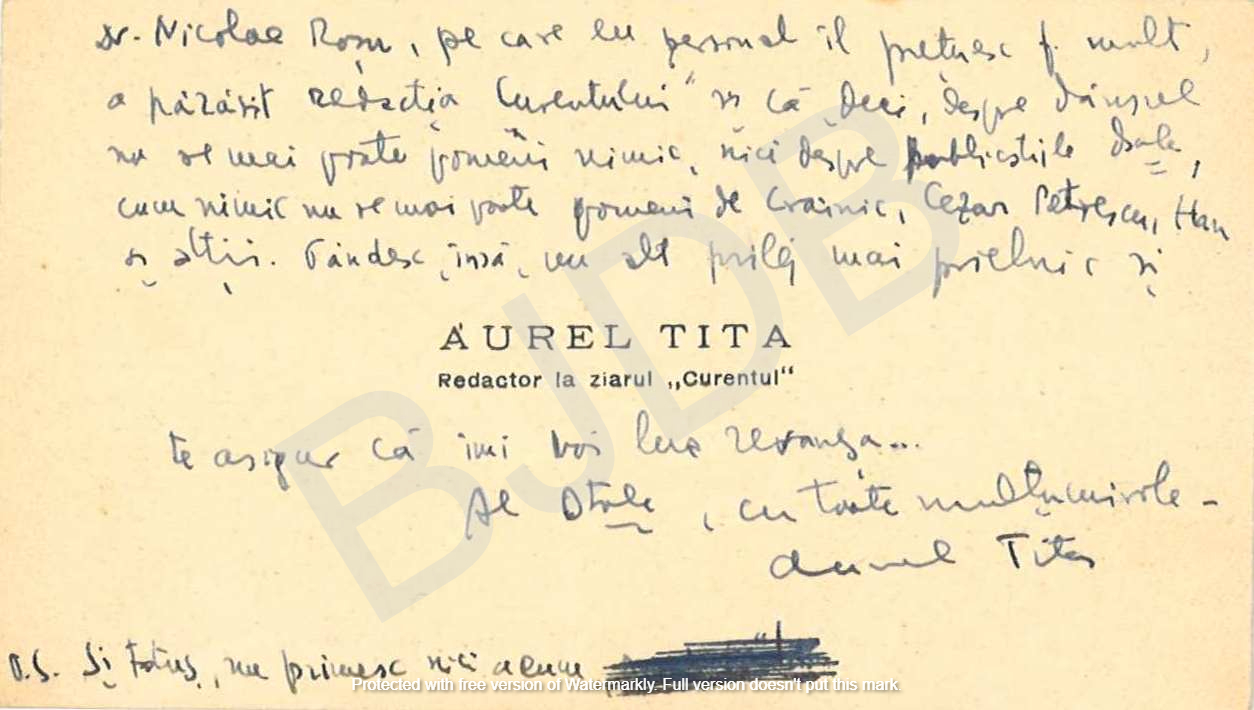 Dr. Nicolae Roșu, pe care eu personal îl prețuesc f. mult,
a părăsit redacția „Curentului" și că deci, despre dânsul
nu se mai poate pomeni nimic, nici despre publicațiile Dsale,
cum nimic nu se mai poate pomeni de Crainic, Cezar Petrescu, Han
și alții. Gândesc, însă, un alt prilej mai prielnic și
AUREL TITA
Redactor la ziarul „Curentul“
te asigur că îmi voi lua revanșa...
Al Dtale, cu toate mulțumirile -
Aurel Tita
P.S. Și totuș, nu primesc nici acum
BJDB
Protected with free version of Watermarkly. Full version doesn't put this mark